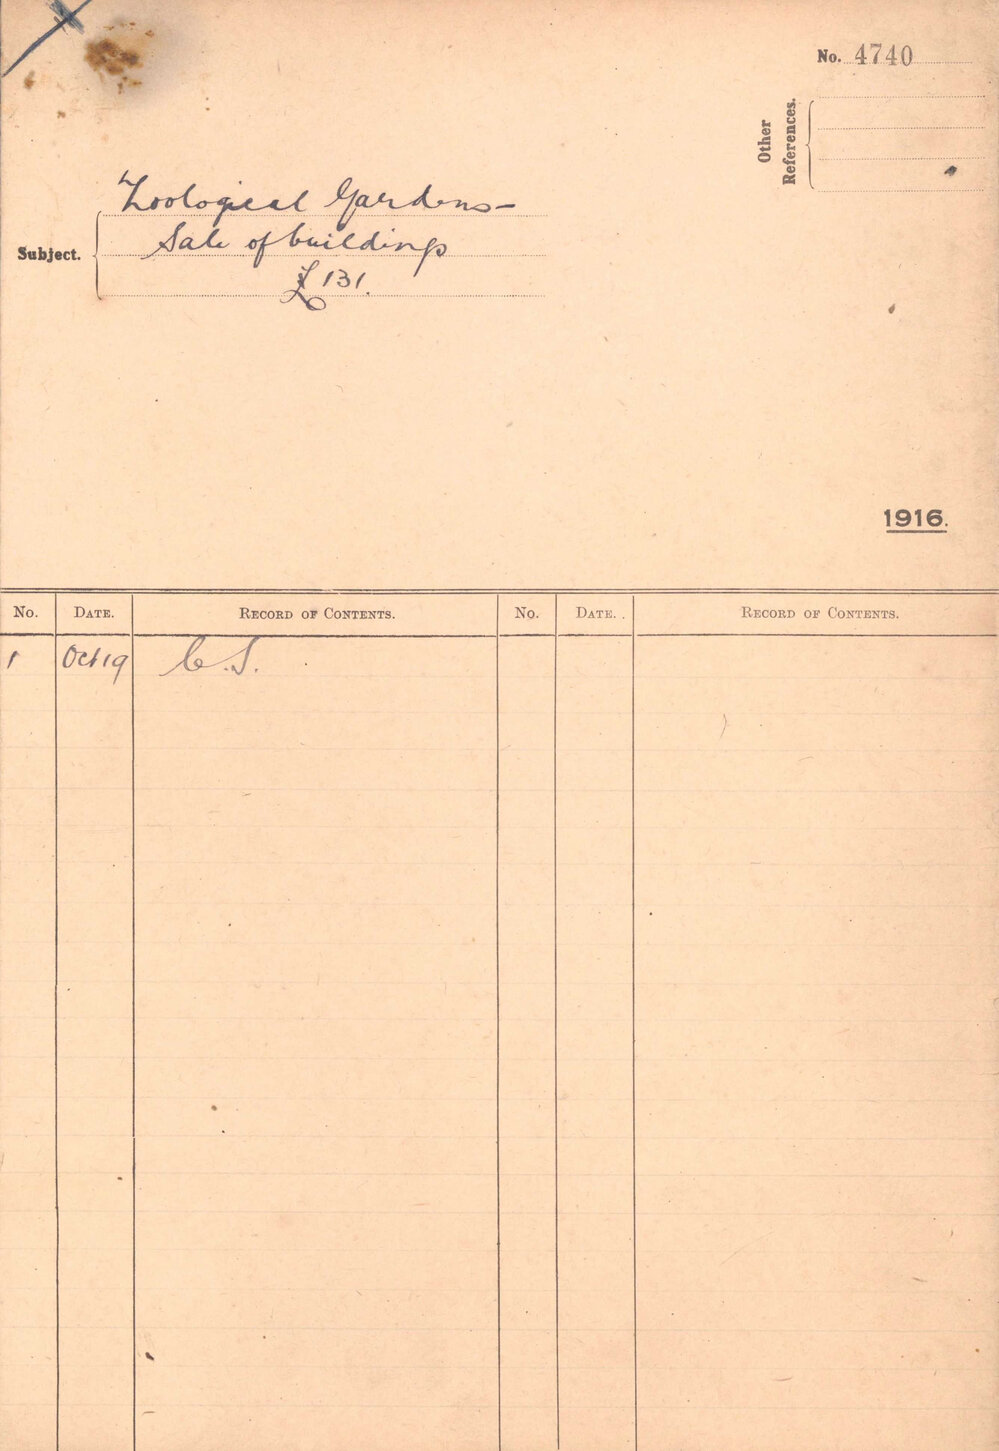 No. 4740
Other
References.
Subject.
Zoological Gardens -
Sale of buildings
£131.
1916.
No. DATE. RECORD OF CONTENTS. No. DATE. . RECORD OF CONTENTS.
1 Oct 19 C.S.